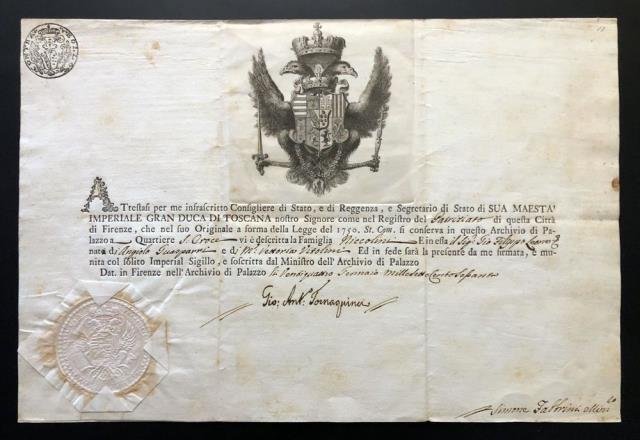 Attestasi per me infrascritto Consigliere di Stato, e di Reggenza, e Segretario di Stato di SUA MAESTA'
IMPERIALE GRAN DUCA DI TOSCANA nostro Signore come nel Registro del Patriziato di questa Città
di Firenze, che nel suo Originale a forma della Legge del 1750. St. Com. si conserva in questo Archivio di Pa-
lazzo a Quartiere S. Croce vi è descritta la Famiglia Niccolini E in esta
nato di Angiolo Ed in fede sarà la presente da me firmata, e mu-
nita col solito Imperial Sigillo, e soscritta dal Ministro dell' Archivio di Palazzo
Dat. in Firenze nell' Archivio di Palazzo li Gennaio
Gio: Ant.º Tornaquinci
Simone Fabbrini